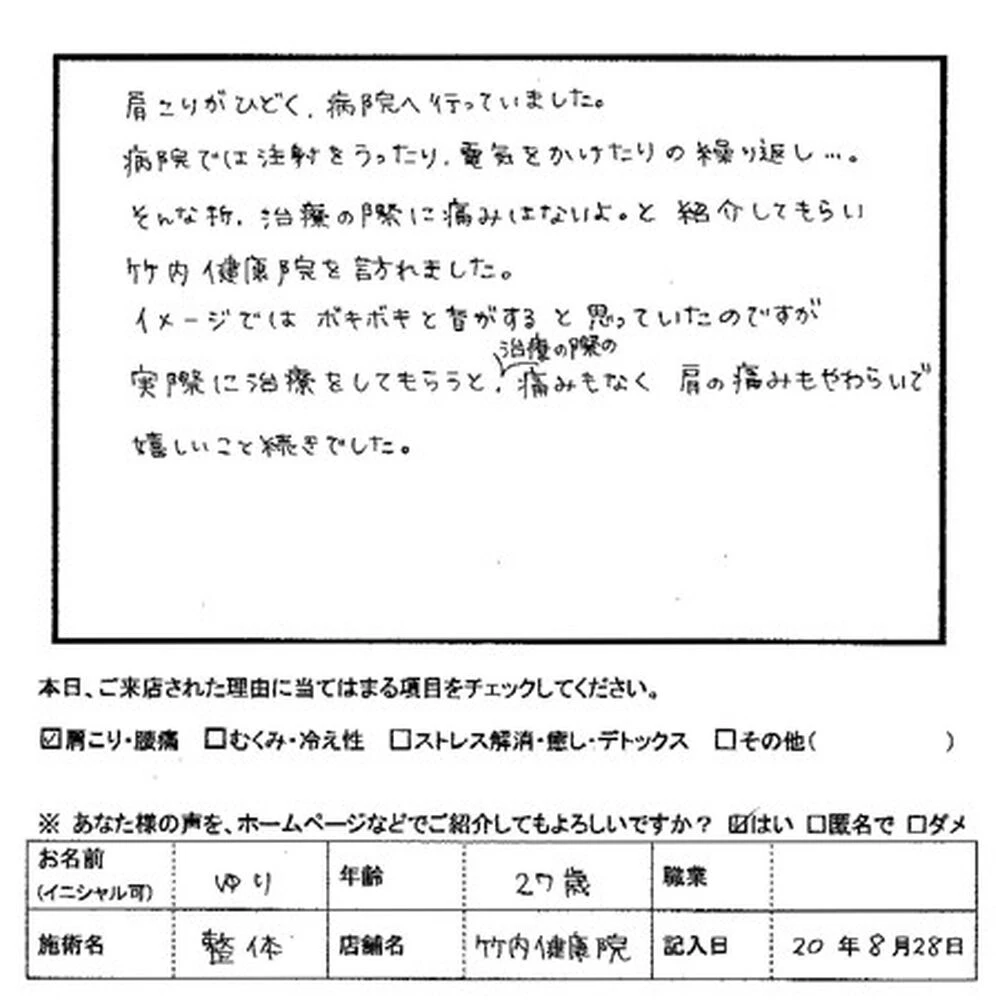 肩こりがひどく、病院へ行っていました。
病院では注射をうったり、電気をかけたりの繰り返し…。
そんな折、治療の際に痛みはないよ。と 紹介してもらい
竹内健康院を訪れました。
イメージでは ボキボキと音がする と 思っていたのですが
治療の際の
実際に治療をしてもらうと、痛みもなく 肩の痛みもやわらいで
嬉しいこと続きでした。
本日、ご来店された理由に当てはまる項目をチェックしてください。
☑肩こり・腰痛 □むくみ・冷え性 □ストレス解消・癒し・デトックス □その他( )
※ あなた様の声を、ホームページなどでご紹介してもよろしいですか? ☑はい □匿名で □ダメ
お名前 (イニシャル可) ゆり 年齢 27歳 職業
施術名 整体 店舗名 竹内健康院 記入日 20年8月28日